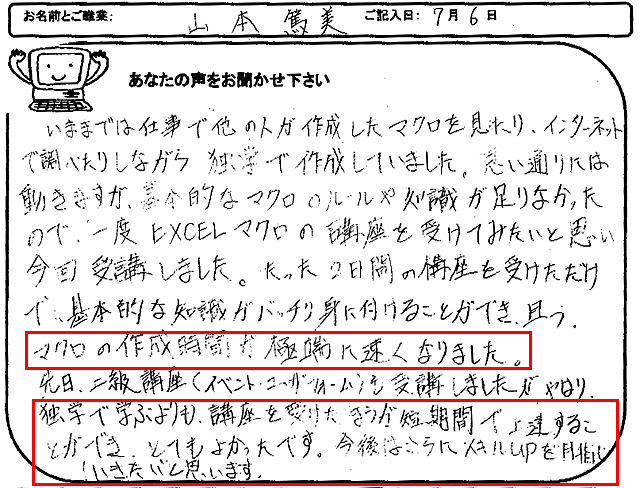 お名前とご職業: 山本 篤美 ご記入日: 7月6日
あなたの声をお聞かせ下さい
いままでは仕事で他の人が作成したマクロを見たり、インターネット
で調べたりしながら 独学で作成していました。思い通りには
動きますが、基本的なマクロのルールや知識が足りなかった
ので、一度EXCELマクロの講座を受けてみたいと思い
今回受講しました。たった2日間の講座を受けただけ
で、基本的な知識がバッチリ身に付けることができ、且つ、
マクロの作成時間が極端に速くなりました。
先日、二級講座(イベント・ユーザーフォーム)も受講しましたがやはり、
独学で学ぶよりも、講座を受けたほうが短期間で上達するこ
とができ、とてもよかったです。今後はさらにスキルUPを目指し
いきたいと思います。